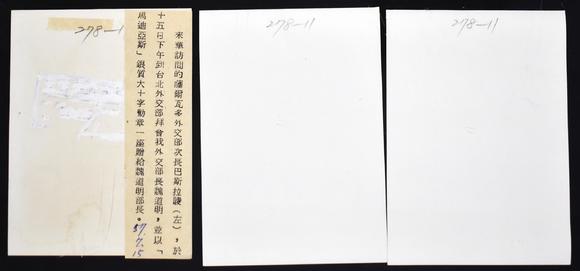 278-11
來華訪問的薩爾瓦多外交部次長巴斯拉（左），於
十五日下午到台北外交部拜會我外交部長魏道明，並以「
馬迪亞斯」銀質大十字勳章一座贈給魏道明部長。
57.
7.
15
278-11
278-11